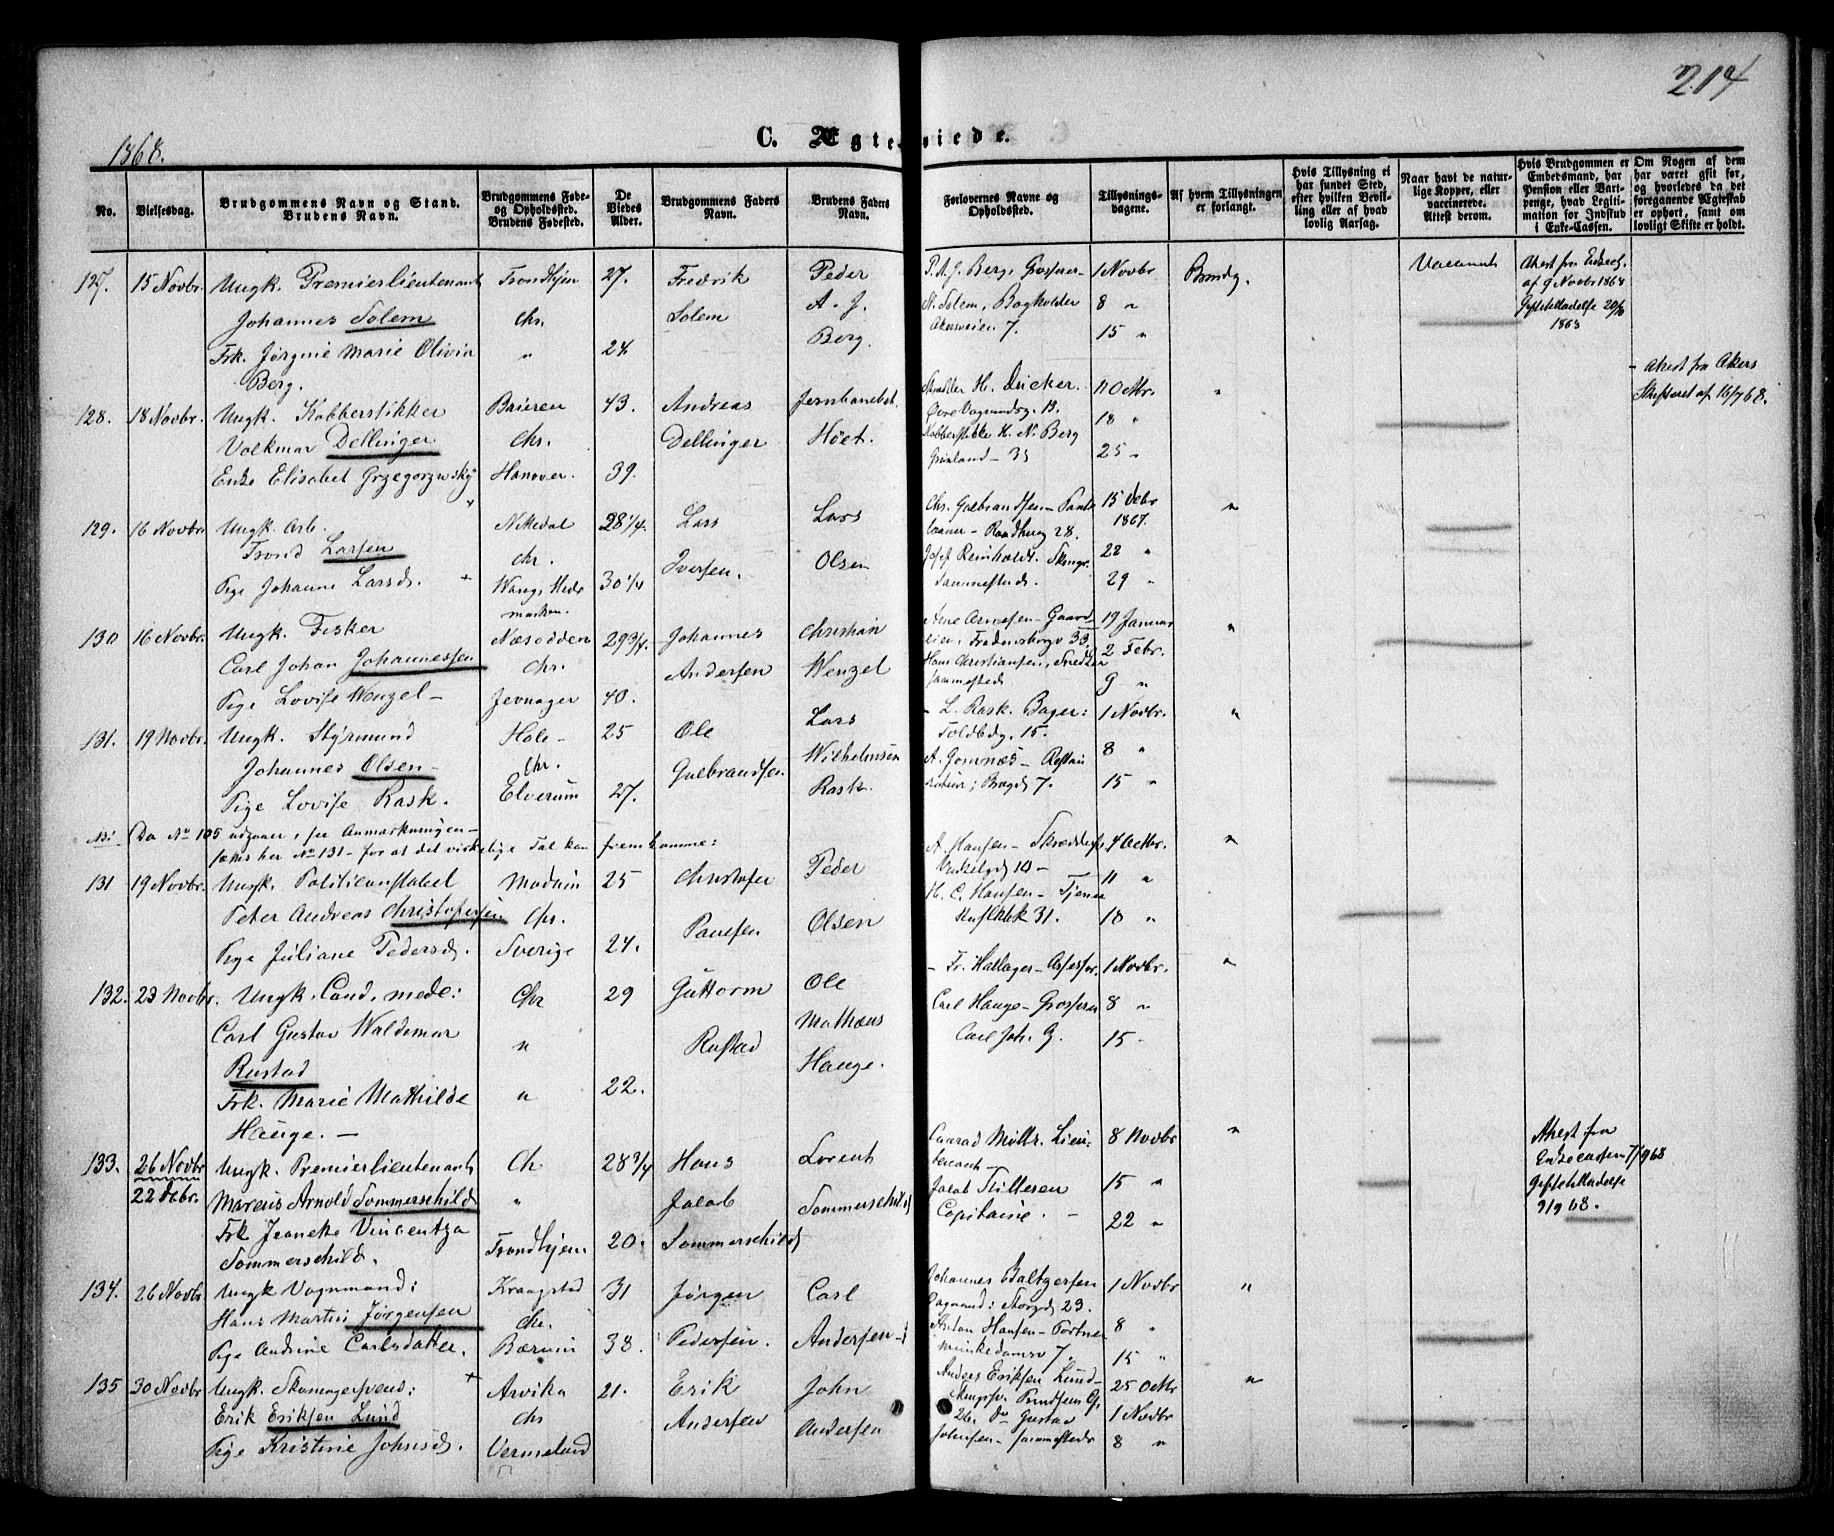 214
1868.
C. Ægteviede.
No.
Vielsesdag.
Brudgommens Navn og Stand.
Brudens Navn.
Brudgommens Føde-
og Opholdssted.
Brudens Fødested.
De
Viedes
Alder.
Brudgommens Faders
Navn.
Brudens Faders
Navn.
Forlovernes Navne og
Opholdssted.
Tillysnings-
dagene.
Af hvem Tillysningen
er forlangt.
Hvis Tillysning ei
har fundet Sted,
efter hvilken Bevil-
ling eller af hvad
lovlig Aarsag.
Naar havt de natur-
lige Kopper, eller
vaccinerede.
Attest derom.
Hvis Brudgommen er
Embedsmand, har
Pension eller Vart-
penge, hvad Legiti-
mation for Indskud
i Enke-Cassen.
Om Nogen af dem
har været gift før,
og hvorledes da det
foregaaende Ægteskab
er ophørt, samt om
lovligt Skifte er holdt.
127. 15 Novbr. Ungk. Premierlieutenant Trondhjem 27. Fredrik Peder P. A. J. Berg, Grosserer 1 Novbr Brudg. Vaccinat Attest fra Enkec.
af 9 Novbr 1868
Johannes Solem Chr. Solem A. J. N. Solem, Bogholder 8 "
Akersveien 7. 15 "
1868
Frk. Jørgine Marie Olivia " 24 Berg.
Berg.
128. 18 Novbr. Ungk. Kobberstikker Baieren 43. Andreas Jernbanebet. H. Dücker. 11 Octbr. " - Attest fra Akers
Skifteret af 16/7 68.
Volkmar Dellinger Chr. Dellinger Höet. 18 "
Kobberstikker H. N. Berg
Enke Elisabet Grzegorzwsky Hanover. 39. Grønland - 35 25 "
129. 16 Novbr. Ungk. Arb. Nitedal 28 1/4. Lars Lars Chr. Gulbrandsen 15 Debr "
1867.
Trond Larsen Chr. Iversen. Olsen Raadhusg 28. 22 "
Pige Johanne Larsd. + Wang, Hede 30 1/4 Josef Reinholdt. 29 "
marken. sammesteds.
130 16 Novbr. Ungk. Fisker Næsodden 29 3/4. Johannes Christian Arne Arnesen - Gaard 19 Januar "
Carl Johan Johannessen Chr. Andersen Wenzel Fredensborgv 33. 2 Febr.
Hans Christiansen, Snedker
Pige Lovise Wenzel - Jevnager 40. sammesteds 9 "
131. 19 Novbr. Ungk. Styrmand Hole - 25 Ole Lars - L. Rask. Bager: 1 Novbr. "
Toldbdg. 15.
Johannes Olsen - Chr. Gulbrandsen Wilhelmsen A. Gomnæs - 8 "
Pige Lovise Rask. Elverum 27. Rask. 7. 15 "
NB: Da No 105 udgaaer, see Anmærkningen -
sættes her No 131 - for at det virkelige Tal kan fremkomme:
131 19 Novbr. Ungk. Politiconstabel Modum 25 Christofer Peder A. Hansen - 4 Octbr. "
11 "
Peter Andreas Christofersen Chr. Paulsen Olsen H. C. Hansen - Tjener
31. 18 "
Pige Juliane Pedersd. Sverige 24.
132. 23 Novbr. Ungk. Cand. mede: Chr 29 Guttorm Ole - Fr. Hallager - Assessor. 1 Novbr. "
Carl Gustav Waldemar " Rustad Mathæus Carl Hauge - Grosserer 8 "
Rustad Hauge. Carl Joh. G. 15 -
Frk. Marie Mathilde " 22.
Hauge. -
133. 26 Novbr Ungk. Premierlieutenant Ch 28 3/4 Hans Lorent Conrad Lieu- 8 Novbr " Attest fra
22 Debr. Marcus Arnold Sommerschild " Jacob Sommerschild tenant Enkecassen 7/9 68
Frk Jeanette Vincentza Trondhjem 20. Sommerschild Jacob 15 "
Sommerschild. Capitaine. - 22 "
9/9 68.
134. 26 Novbr. Ungk Vognmand: Kraagstad 31 Jørgen Carl Johannes Baltzersen 1 Novbr "
Vognmand: Storgd 23.
Hans Martin Jørgensen Chr. Pedersen. Andersen - Anton Hansen - Portner 8 "
Pige Andrine Carlsdatter. Bærum 38. Munkedamsv 7. 15 "
135 30 Novbr Ungk. Skomagersvend: + Arvika 21. Erik John Anders Eriksen Lund - 25 Octbr "
Erik Eriksen Lund Chr Andersen Andersen 26. do Gustav 1 Novbr
Pige Kristine Johnsd. Vermeland Johnsen - sammesteds 8 "